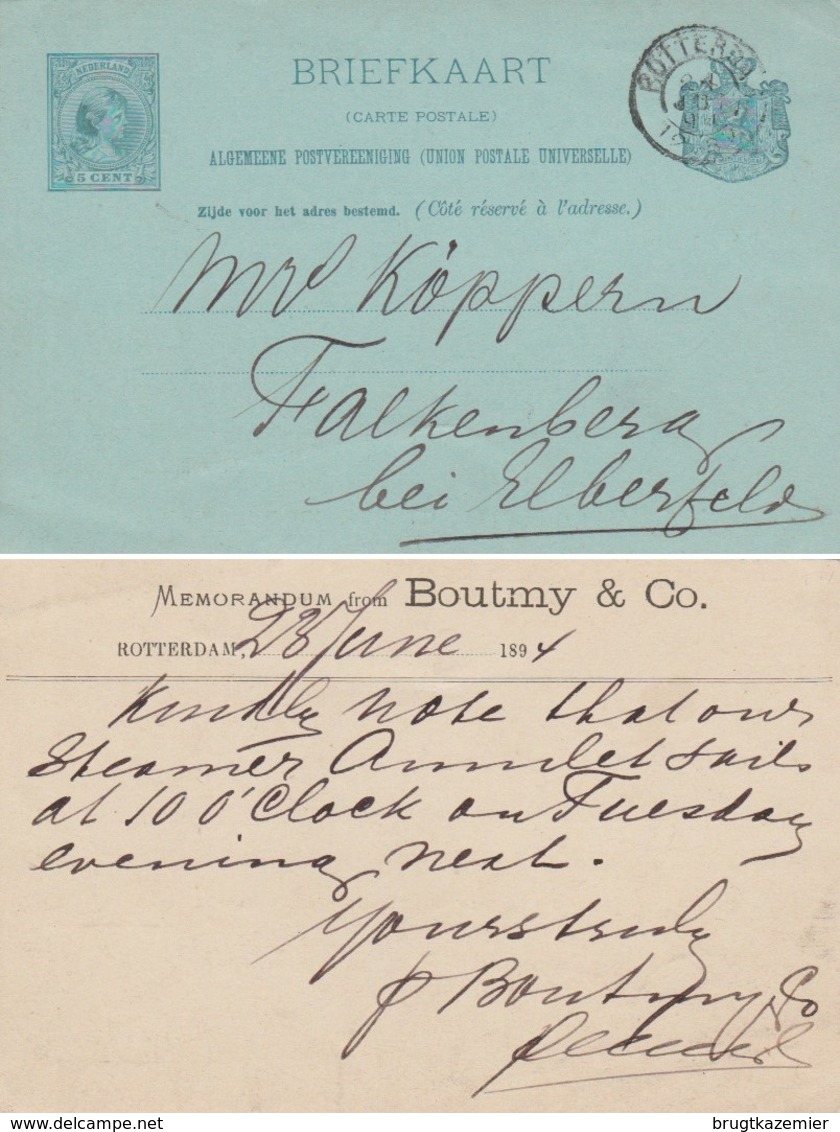 NEDERLAND
5 CENT
BRIEFKAART
(CARTE POSTALE)
ALGEMEENE POSTVEREENIGING (UNION POSTALE UNIVERSELLE)
Zijde voor het adres bestemd. (Côté réservé à l'adresse.)
ROTTERDAM
Köppern
Falkenberg
bei Elberfeld
MEMORANDUM from Boutmy & Co.
ROTTERDAM, 23 June 1894
Kindly note that our
Steamer Amulet sails
at 10 O'Clock on Tuesday
evening next.
Yours truly
p Boutmy & Co
delcampe.net
brugtkazemier